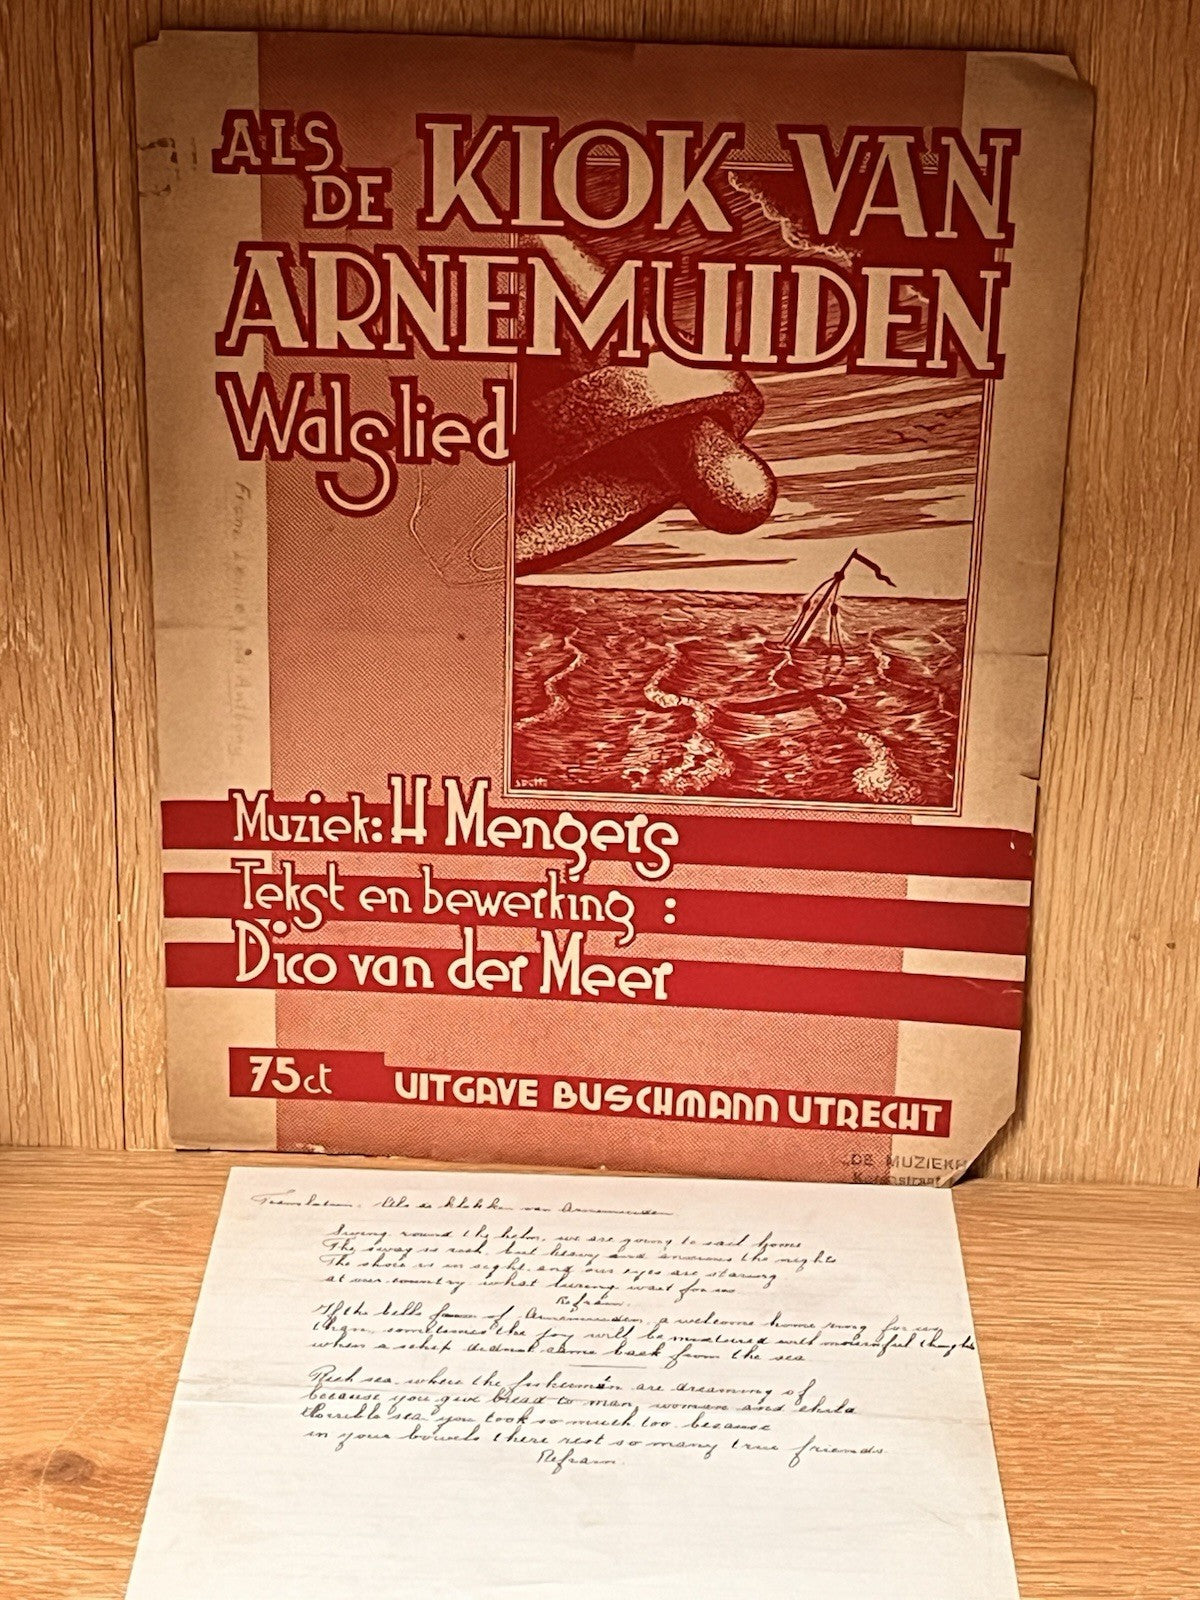 ALS
DE KLOK VAN
ARNEMUIDEN
Walslied
Muziek: H Mengers
Tekst en bewerking :
Dico van der Meer
75ct UITGAVE BUSCHMANN UTRECHT
DE MUZIEKH
straat
Translation: Als de klokken van Arnemuiden
Swing round the helm, we are going to sail home
The sway is rich, but heavy and anxious the nights
The shore is in sight, and our eyes are staring
at our country what luring wait for us
Refrain.
If the bells of Arnemuiden, a welcome home rung for us
then, sometimes the joy will be mixtured with mournful thoughts
when a schip didnot came back from the sea
Rich sea, where the fishermen are dreaming of
because you give bread to man, woman and child
Horrible sea you took so much too, because
in your bowels there rest so many true friends.
Refrain.